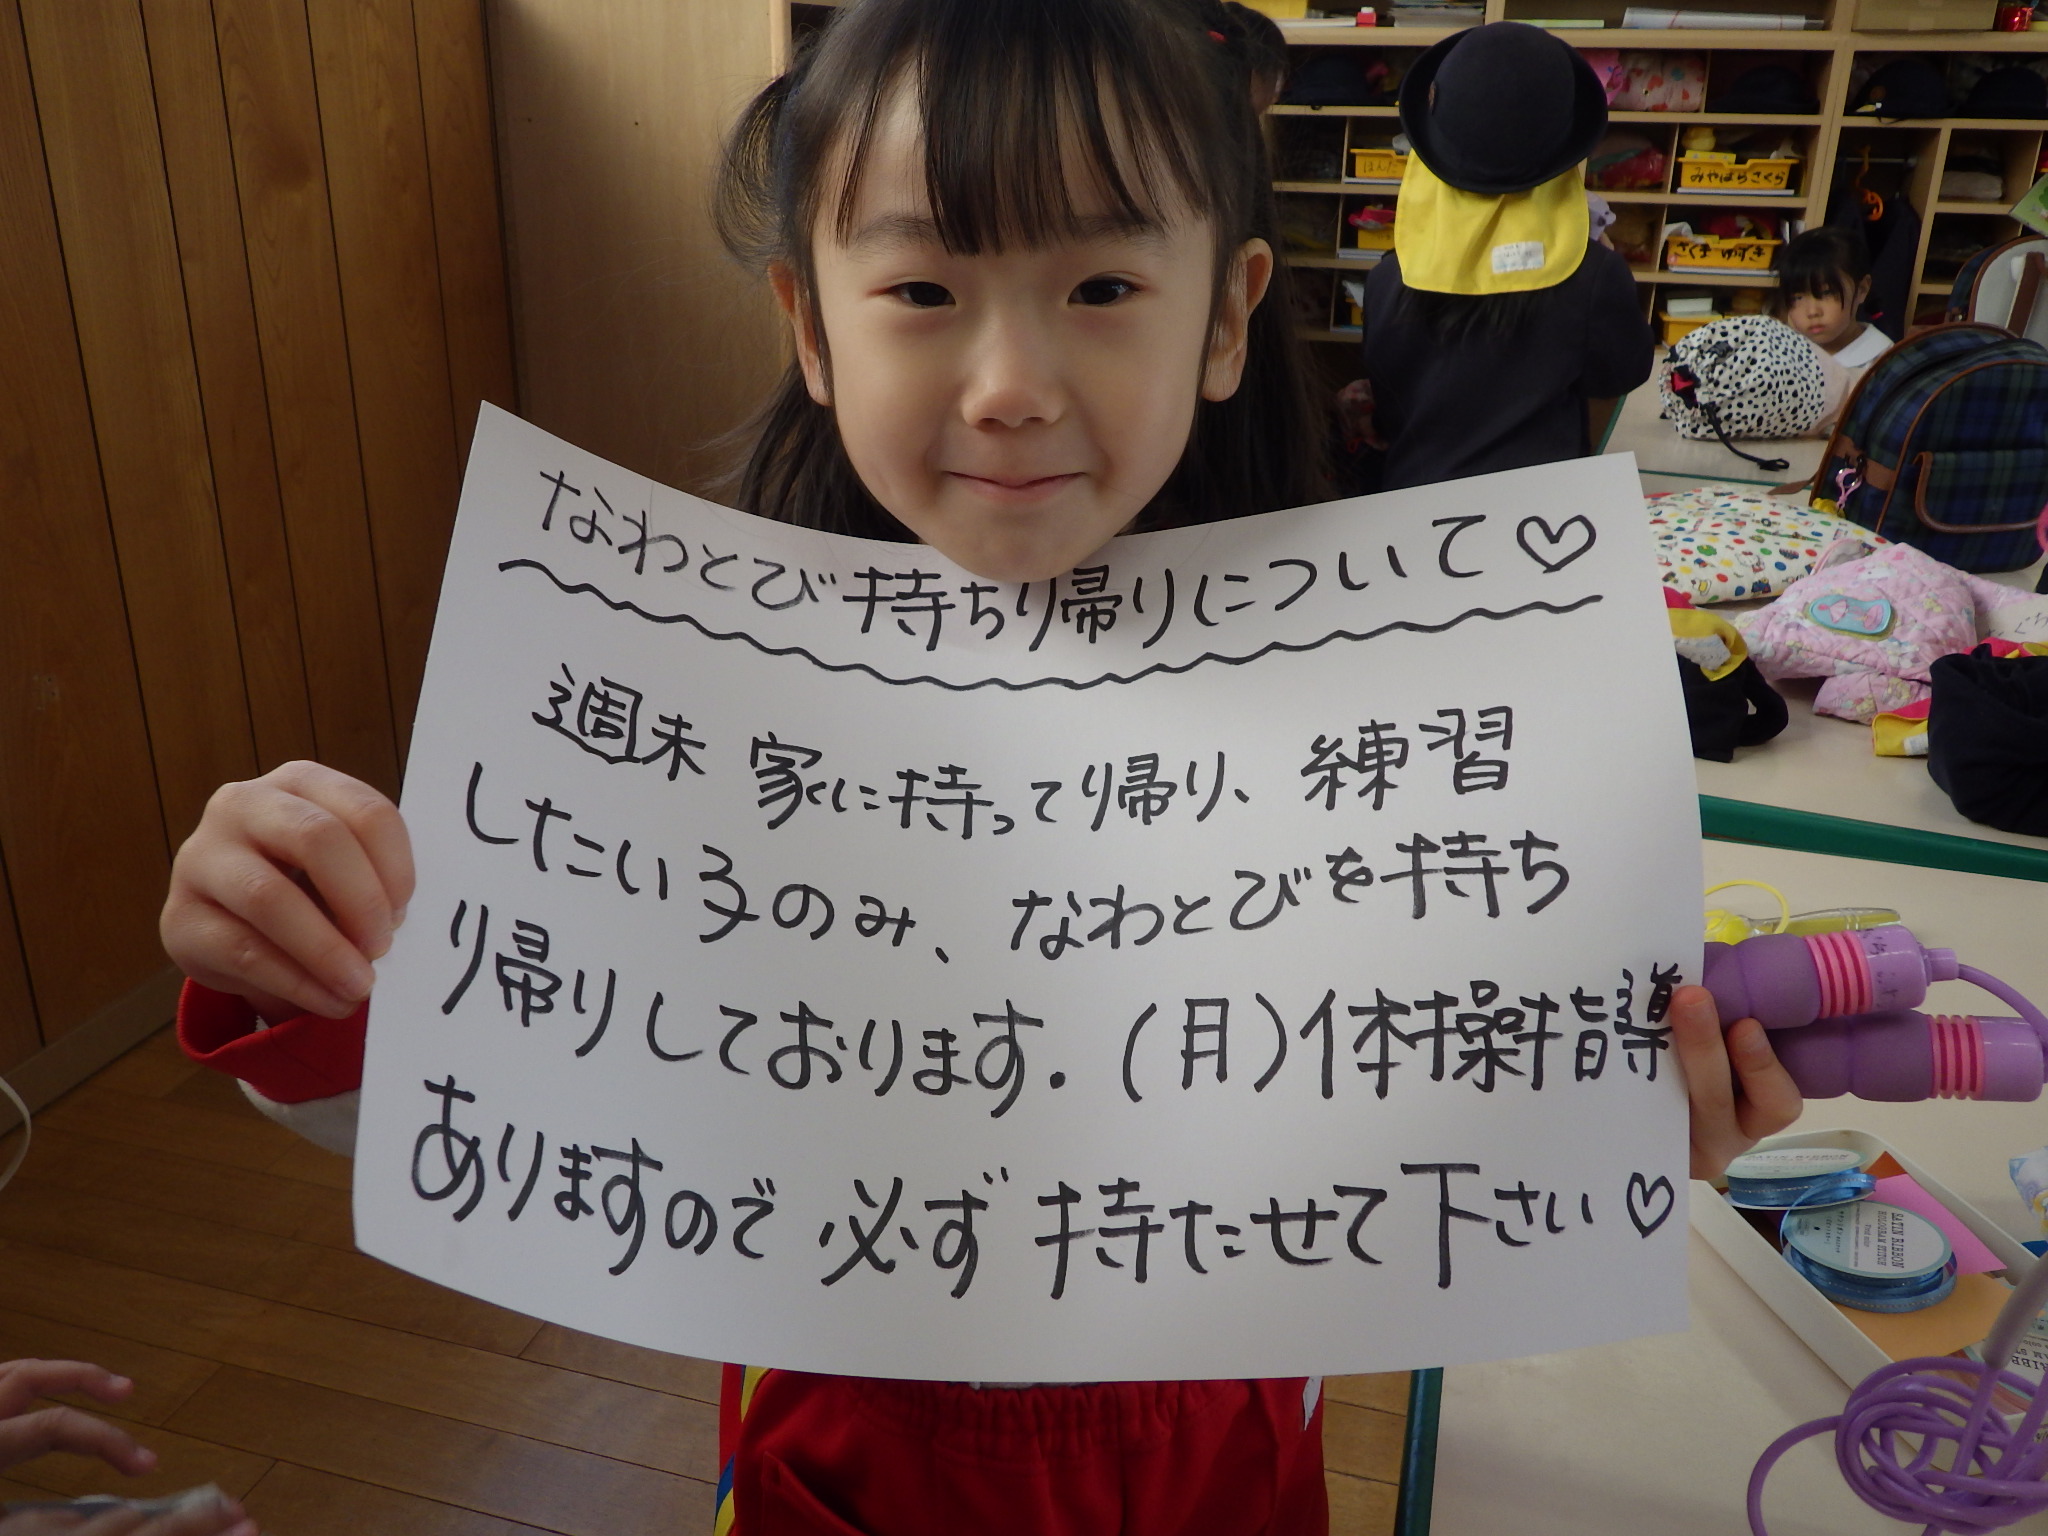 なわとび持ち帰りについて♡
週末 家に持って帰り、練習
したい子のみ、なわとびを持ち
り帰りしております.(月)体操指導
ありますので 必ず 持たせて下さい♡
ほんだ
みやばらさくら
さくま ゆずき
SATIN RIBBON
SATIN RIBBON
HOLOGRAM STITCH